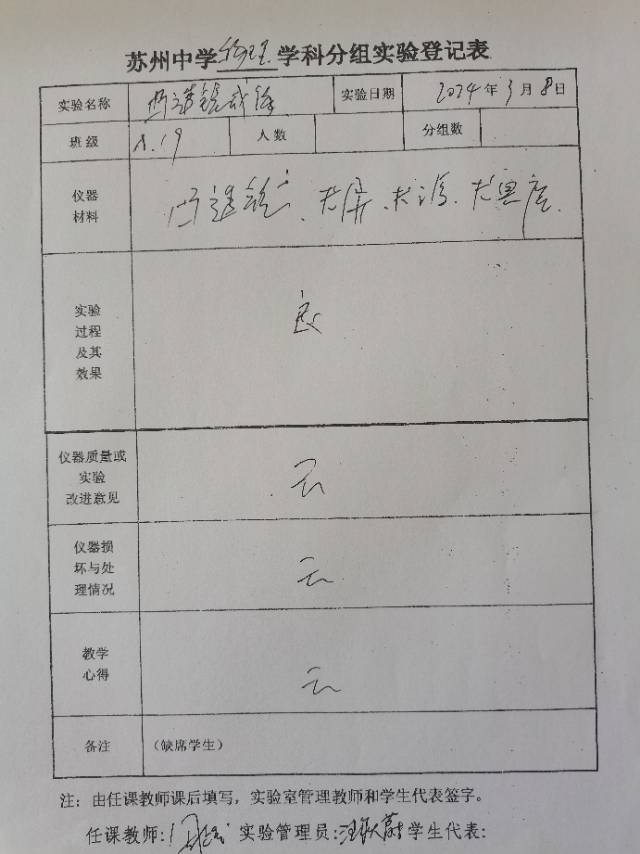 苏州中学物理学科分组实验登记表
实验名称 凸透镜成像 实验日期 2024年3月8日
班级 8.19 人数 分组数
仪器
材料
凸透镜、光屏、光源、光具座
实验
过程
及其
效果
良
仪器质量或
实验
改进意见
无
仪器损
坏与处
理情况
无
教学
心得
无
备注 (缺席学生)
注：由任课教师课后填写，实验室管理教师和学生代表签字。
任课教师： 实验管理员： 学生代表：